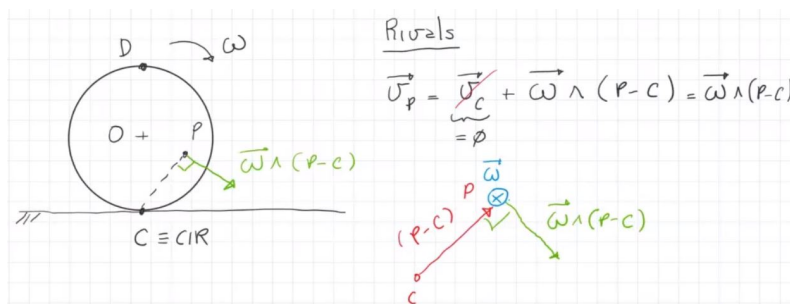 D
ω
O +
P
ω ∧ (P-C)
C ≡ CIR
Rivals
v_P = v_C + ω ∧ (P-C) = ω ∧ (P-C)
= ∅
ω
P
(P-C)
ω ∧ (P-C)
C